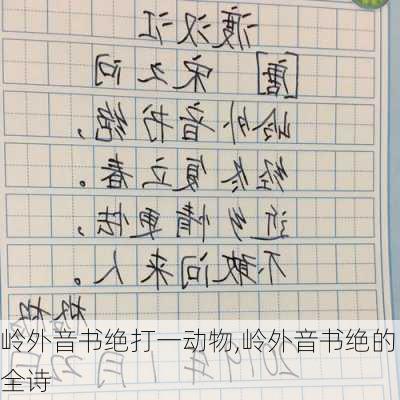 渡汉江
[唐] 宋之问
岭外音书绝,
经冬复立春。
近乡情更怯,
不敢问来人。
岭外音书绝打一动物,岭外音书绝的
全诗